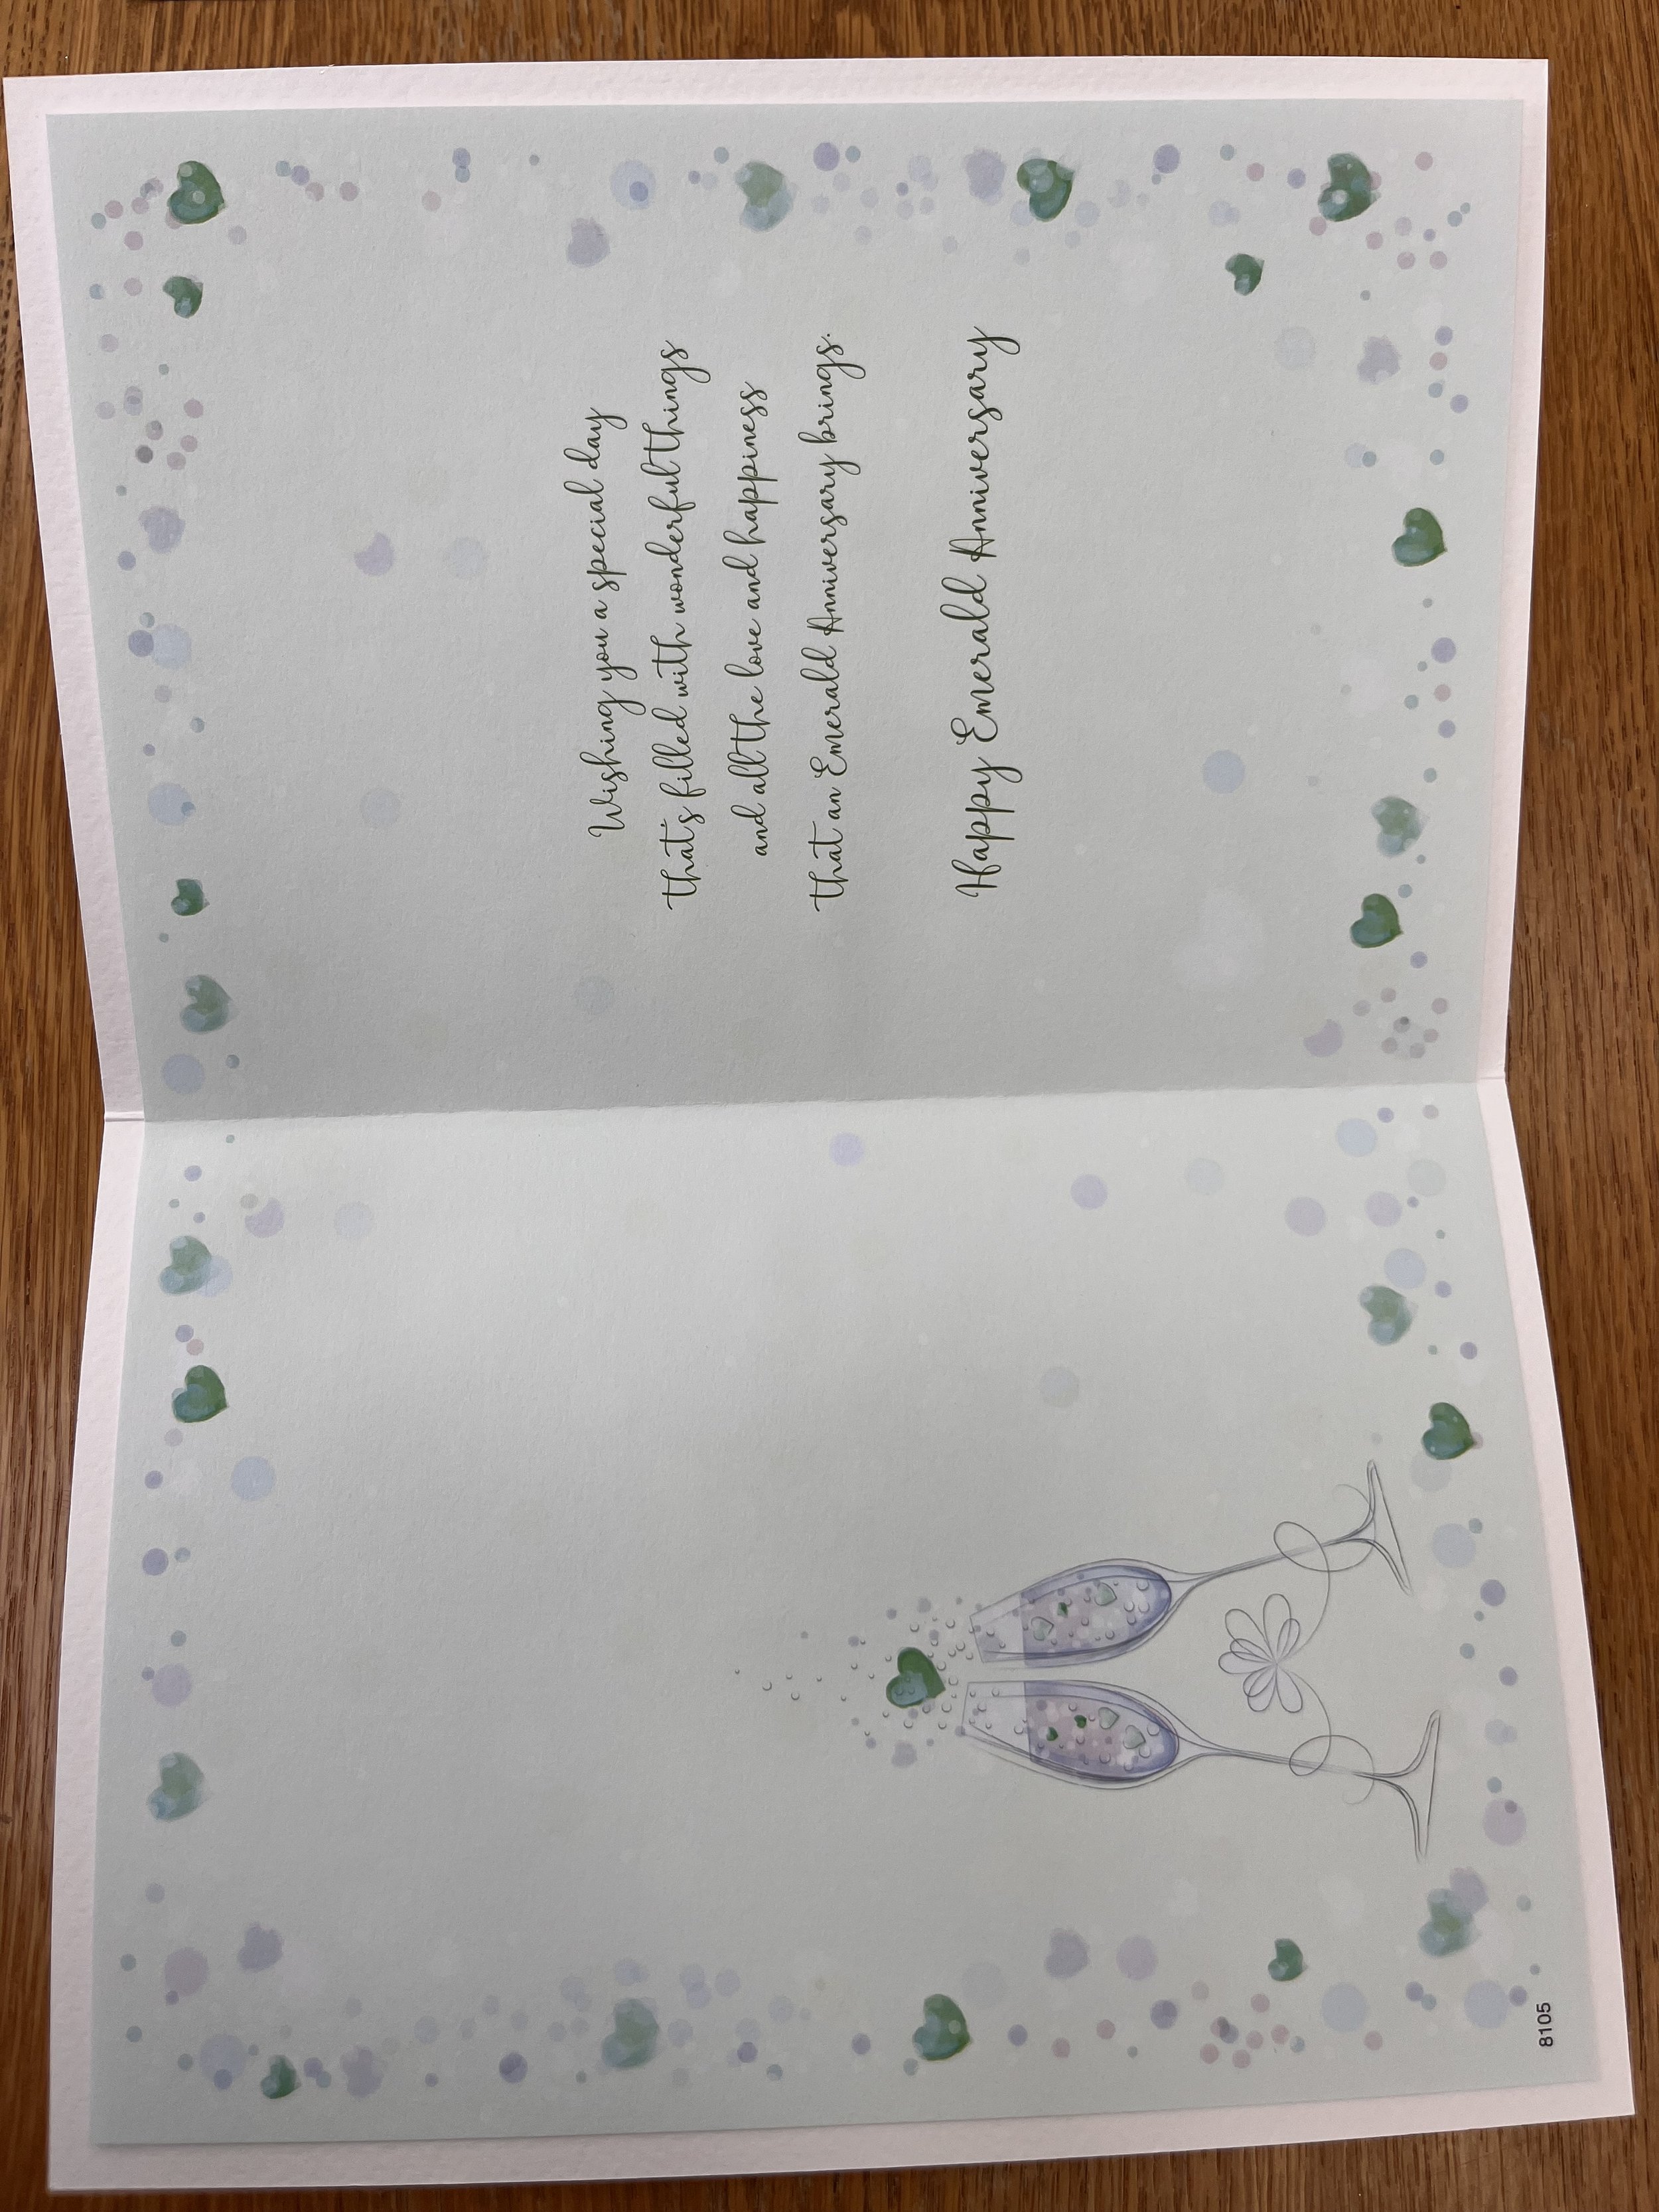 Wishing you a special day
that's filled with wonderful things
and all the love and happiness
that an Emerald Anniversary brings.
Happy Emerald Anniversary
8105